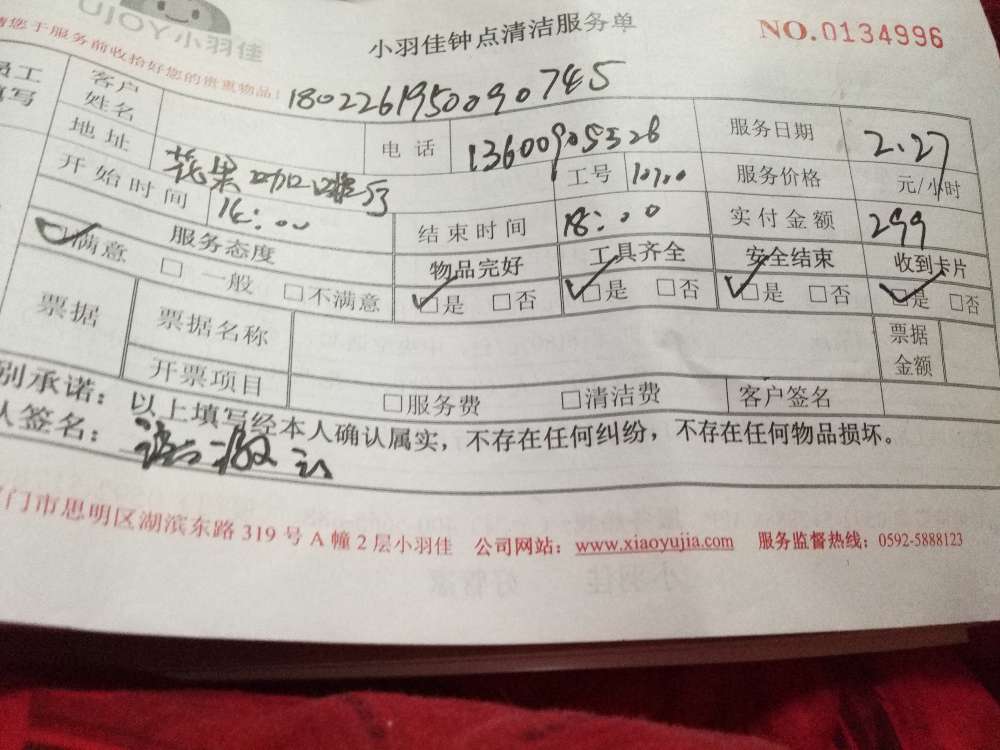 UJOY小羽佳
小羽佳钟点清洁服务单
NO.0134996
请您于服务前收拾好您的贵重物品!
员工
填写
客户
姓名
1802261950090745
地址
电话
13600905328
服务日期
2.27
开始时间
14:00
工号
服务价格
元/小时
服务态度
结束时间
18:00
实付金额
299
满意
□一般
□不满意
物品完好
工具齐全
安全结束
收到卡片
□是 □否
□是 □否
□是 □否
□是 □否
票据
票据名称
票据
金额
开票项目
□服务费
□清洁费
客户签名
别承诺:以上填写经本人确认属实,不存在任何纠纷,不存在任何物品损坏。
人签名:
门市思明区湖滨东路 319 号 A 幢 2 层小羽佳 公司网站:www.xiaoyujia.com 服务监督热线:0592-5888123